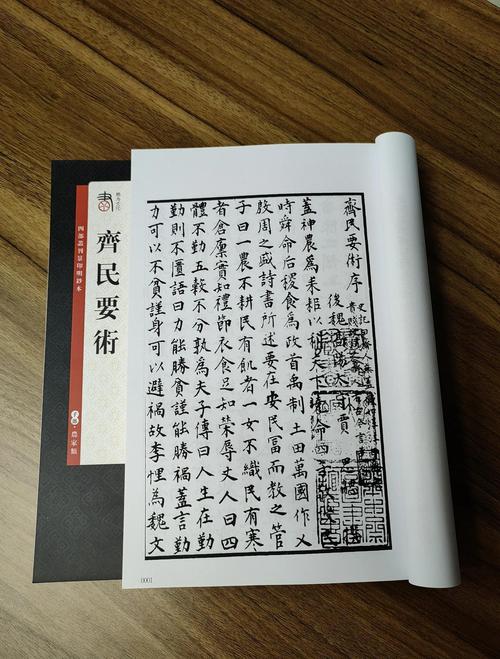 齊民要術序
後魏
蓋神農為耒耜以利天下堯命四子敬授民
時舜命后稷食為政首禹制土田萬國作乂
殷周之盛詩書所述要在安民富而教之管
子曰一農不耕民有飢者一女不織民有寒
者倉廩實知禮節衣食足知榮辱丈人曰四
體不勤五穀不分孰為夫子傳曰人生在勤
勤則不匱語曰力能勝貧謹能勝禍蓋言勤
力可以不貧謹身可以避禍故李悝為魏文
0001
齊民要術
四部叢刊景印明鈔本
子部·農家類